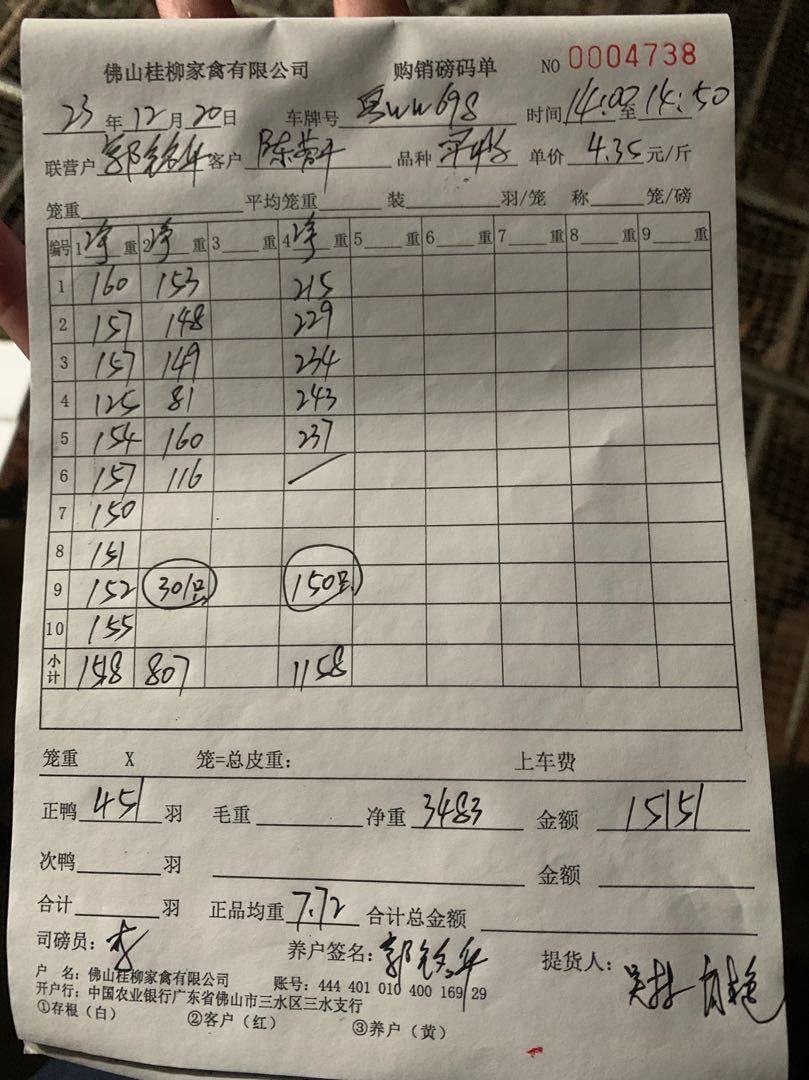 佛山桂柳家禽有限公司 购销磅码单 NO 0004738
23年12月20日 车牌号 WW698 时间14:00至14:50
联营户 郭铭华 客户 陈营 品种 单价 4.35 元/斤
笼重 平均笼重 装 羽/笼 称 笼/磅
编号 1净重 2净重 3 重 4净重 5 重 6 重 7 重 8 重 9 重
1 160 153 215
2 157 148 229
3 157 149 234
4 125 81 243
5 154 160 237
6 157 116 /
7 150
8 151
9 152 301只 150只
10 155
小计 1518 807 1158
笼重 X 笼=总皮重: 上车费
正鸭 451 羽 毛重 净重 3483 金额 15151
次鸭 羽 金额
合计 羽 正品均重 7.72 合计总金额
司磅员: 李 养户签名: 郭铭华 提货人:
户 名: 佛山桂柳家禽有限公司 账号: 444 401 010 400 169 29
开户行: 中国农业银行广东省佛山市三水区三水支行
①存根(白) ②客户(红) ③养户(黄)